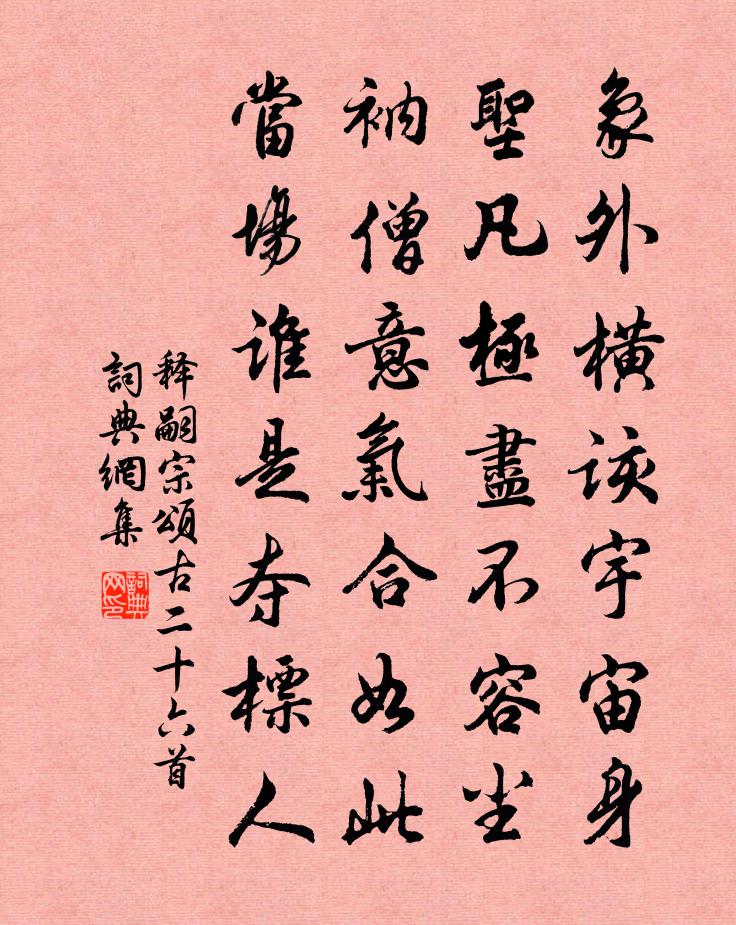 象外橫該宇宙身
聖凡極盡不容尘
衲僧意氣合如此
當場誰是夺標人
释嗣宗頌古二十六首
詞典網集
詞典网印